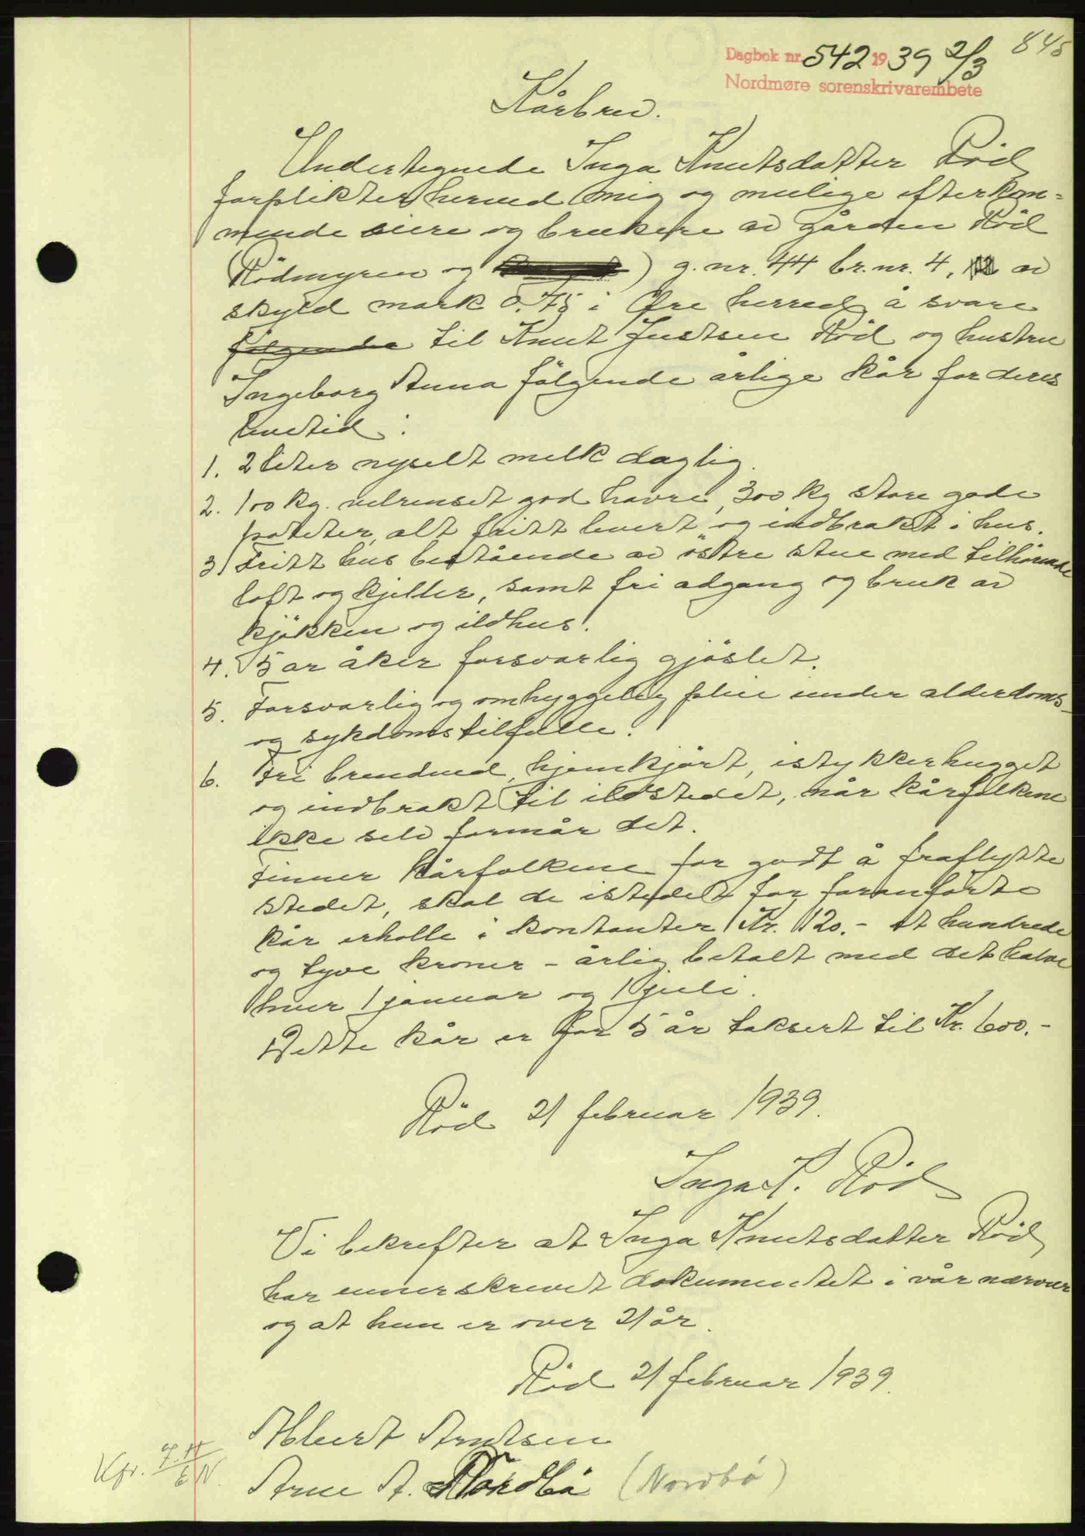 845
Dagbok nr. 542 1939 2/3
Nordmøre sorenskrivarembete
Kårbrev.
Undertegnede Inga Knutsdatter Röd
forplikter herved mig og mulige efterkom-
mende eiere og brukere av gården Röd
(Rödmyren og ) g.nr. 44 br.nr. 4, av
skyld mark 0.75 i Øre herred å svare
følgende til Knut Justsen Röd og hustru
Ingeborg Anna fölgende årlige kår for deres
levetid:
1. 2 liter nysilt melk daglig.
2. 100 kg. velrenset god havre, 300 kg store gode
poteter, alt fritt levert og indbrakt i hus.
3. Fritt hus bestående av östre stue med tilhörende
loft og kjeller, samt fri adgang og bruk av
kjökken og ildhus.
4. 5 ar åker forsvarlig gjöslet.
5. Forsvarlig og omhyggelig pleie under alderdoms-
og sykdomstilfelle.
6. Fri brendved, hjemkjört, istykkerhugget
og indbrakt til ildstedet, når kårfolkene
ikke selv formår det.
Finner kårfolkene for godt å fraflytte
stedet, skal de istedet for foranförte
kår erholle i kontanter Kr. 120.- et hundrede
og tyve kroner - årlig betalt med det halve
hver 1 januar og 1 juli.
Dette kår er for 5 år taksert til Kr. 600.-
Röd 21 februar 1939.
Inga K. Röd
Vi bekrefter at Inga Knutsdatter Röd
har unnerskrevet dokumentet i vår nærver
og at hun er over 21 år.
Röd 21 februar 1939.
Albert Arntsen
Kfr. E.N.
Arne A. Nordbö (Nordbö)